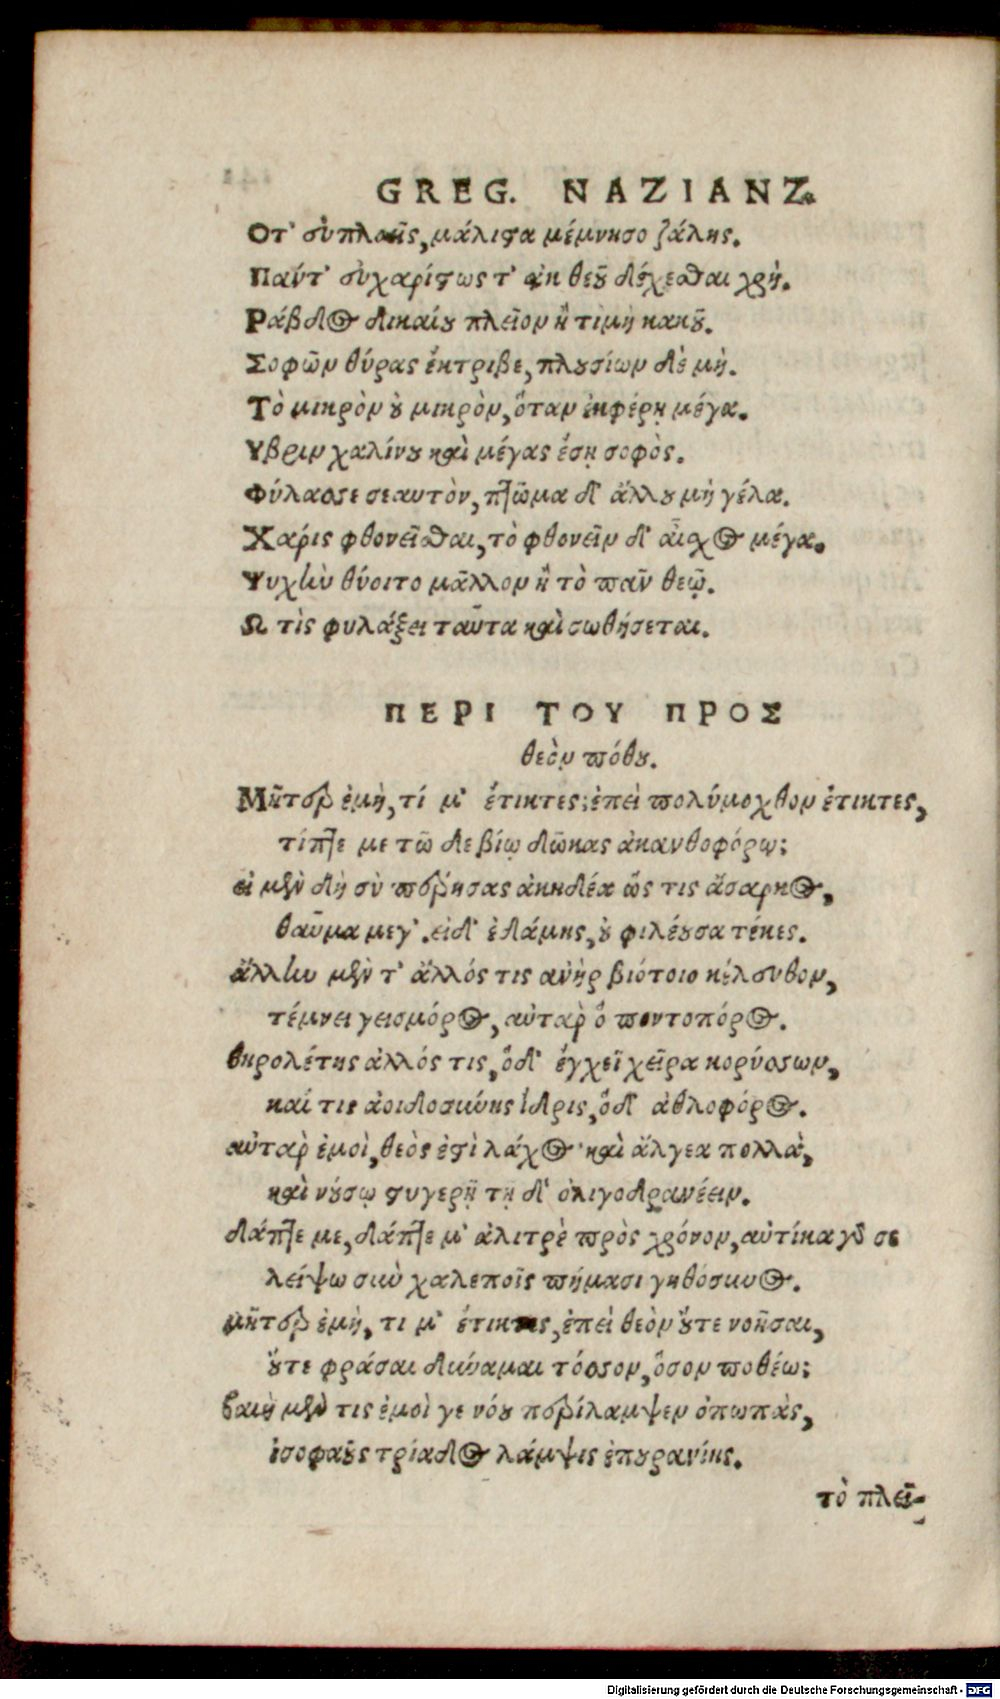 GREG. NAZIANZ.
Οτ' εὐπλοῆς, μάλιστα μέμνησο ζάλης.
Παντ' εὐχαρίστως τ' ἐκ θεοῦ δέχεσθαι χρή.
Ράβδος δικαίου πλεῖον ἢ τιμὴ κακοῦ.
Σοφῶν θύρας ἔκτριβε, πλουσίων δὲ μὴ.
Τὸ μικρὸν οὐ μικρὸν, ὅταν ἐκφέρῃ μέγα.
Υβριν χαλίνου καὶ μέγας ἔσῃ σοφὸς.
Φύλασσε σεαυτὸν, πτῶμα δ' ἄλλου μὴ γέλα.
Χαρίς φθονεῖσθαι, τὸ φθονεῖν δ' αἶσχος μέγα.
Ψυχὴν θύοιτο μᾶλλον ἢ τὸ πᾶν θεῷ.
Ω τὶς φυλάξει ταῦτα καὶ σωθήσεται.
ΠΕΡΙ ΤΟΥ ΠΡΟΣ
θεὸν πόθου.
Μῆτερ ἐμὴ, τί μ' ἔτικτες; ἐπεὶ πολύμοχθον ἔτικτες,
τίπτε με τῶ δε βίῳ δῶκας ἀκανθοφόρῳ;
εἰ μὲν δὴ σὺ πέρησας ἀκηδέα ὥς τις ἄσαρκος,
θαῦμα μεγ'. εἰδ' ἐδάμης, οὐ φιλέουσα τέκες.
ἄλλην μὲν τ' ἄλλός τις ἀνὴρ βιότοιο κέλευθον,
τέμνει γειομόρος, αὐτὰρ ὁ ποντοπόρος.
θηρολέτης ἀλλός τις, ὅδ' ἔγχεϊ χεῖρα κορύσσων,
καί τις ἀοιδοσύνης ἴδρις, ὅδ' ἀθλοφόρος.
αὐτὰρ ἐμοὶ, θεὸς ἐστὶ λάχος καὶ ἄλγεα πολλὰ,
καὶ νούσῳ στυγερῇ τῇ δ' ὀλιγοδρανέειν.
δάπτε με, δάπτε μ' ἀλιτρὲ πρὸς χρόνον, αὐτίκα γὰρ σε
λείψω σὺν χαλεποῖς πήμασι γηθόσυνος.
μῆτερ ἐμὴ, τι μ' ἔτικτες, ἐπεὶ θεὸν οὔτε νοῆσαι,
οὔτε φράσαι δύναμαι τόσσον, ὅσον ποθέω;
βαιὴ μὲν τις ἐμοὶ γε νόου περίλαμψεν ὀπωπὰς,
ἰσοφαοῦς τρίαδος λάμψις ἐπουρανίης.
τὸ πλεῖ-
Digitalisierung gefördert durch die Deutsche Forschungsgemeinschaft - DFG